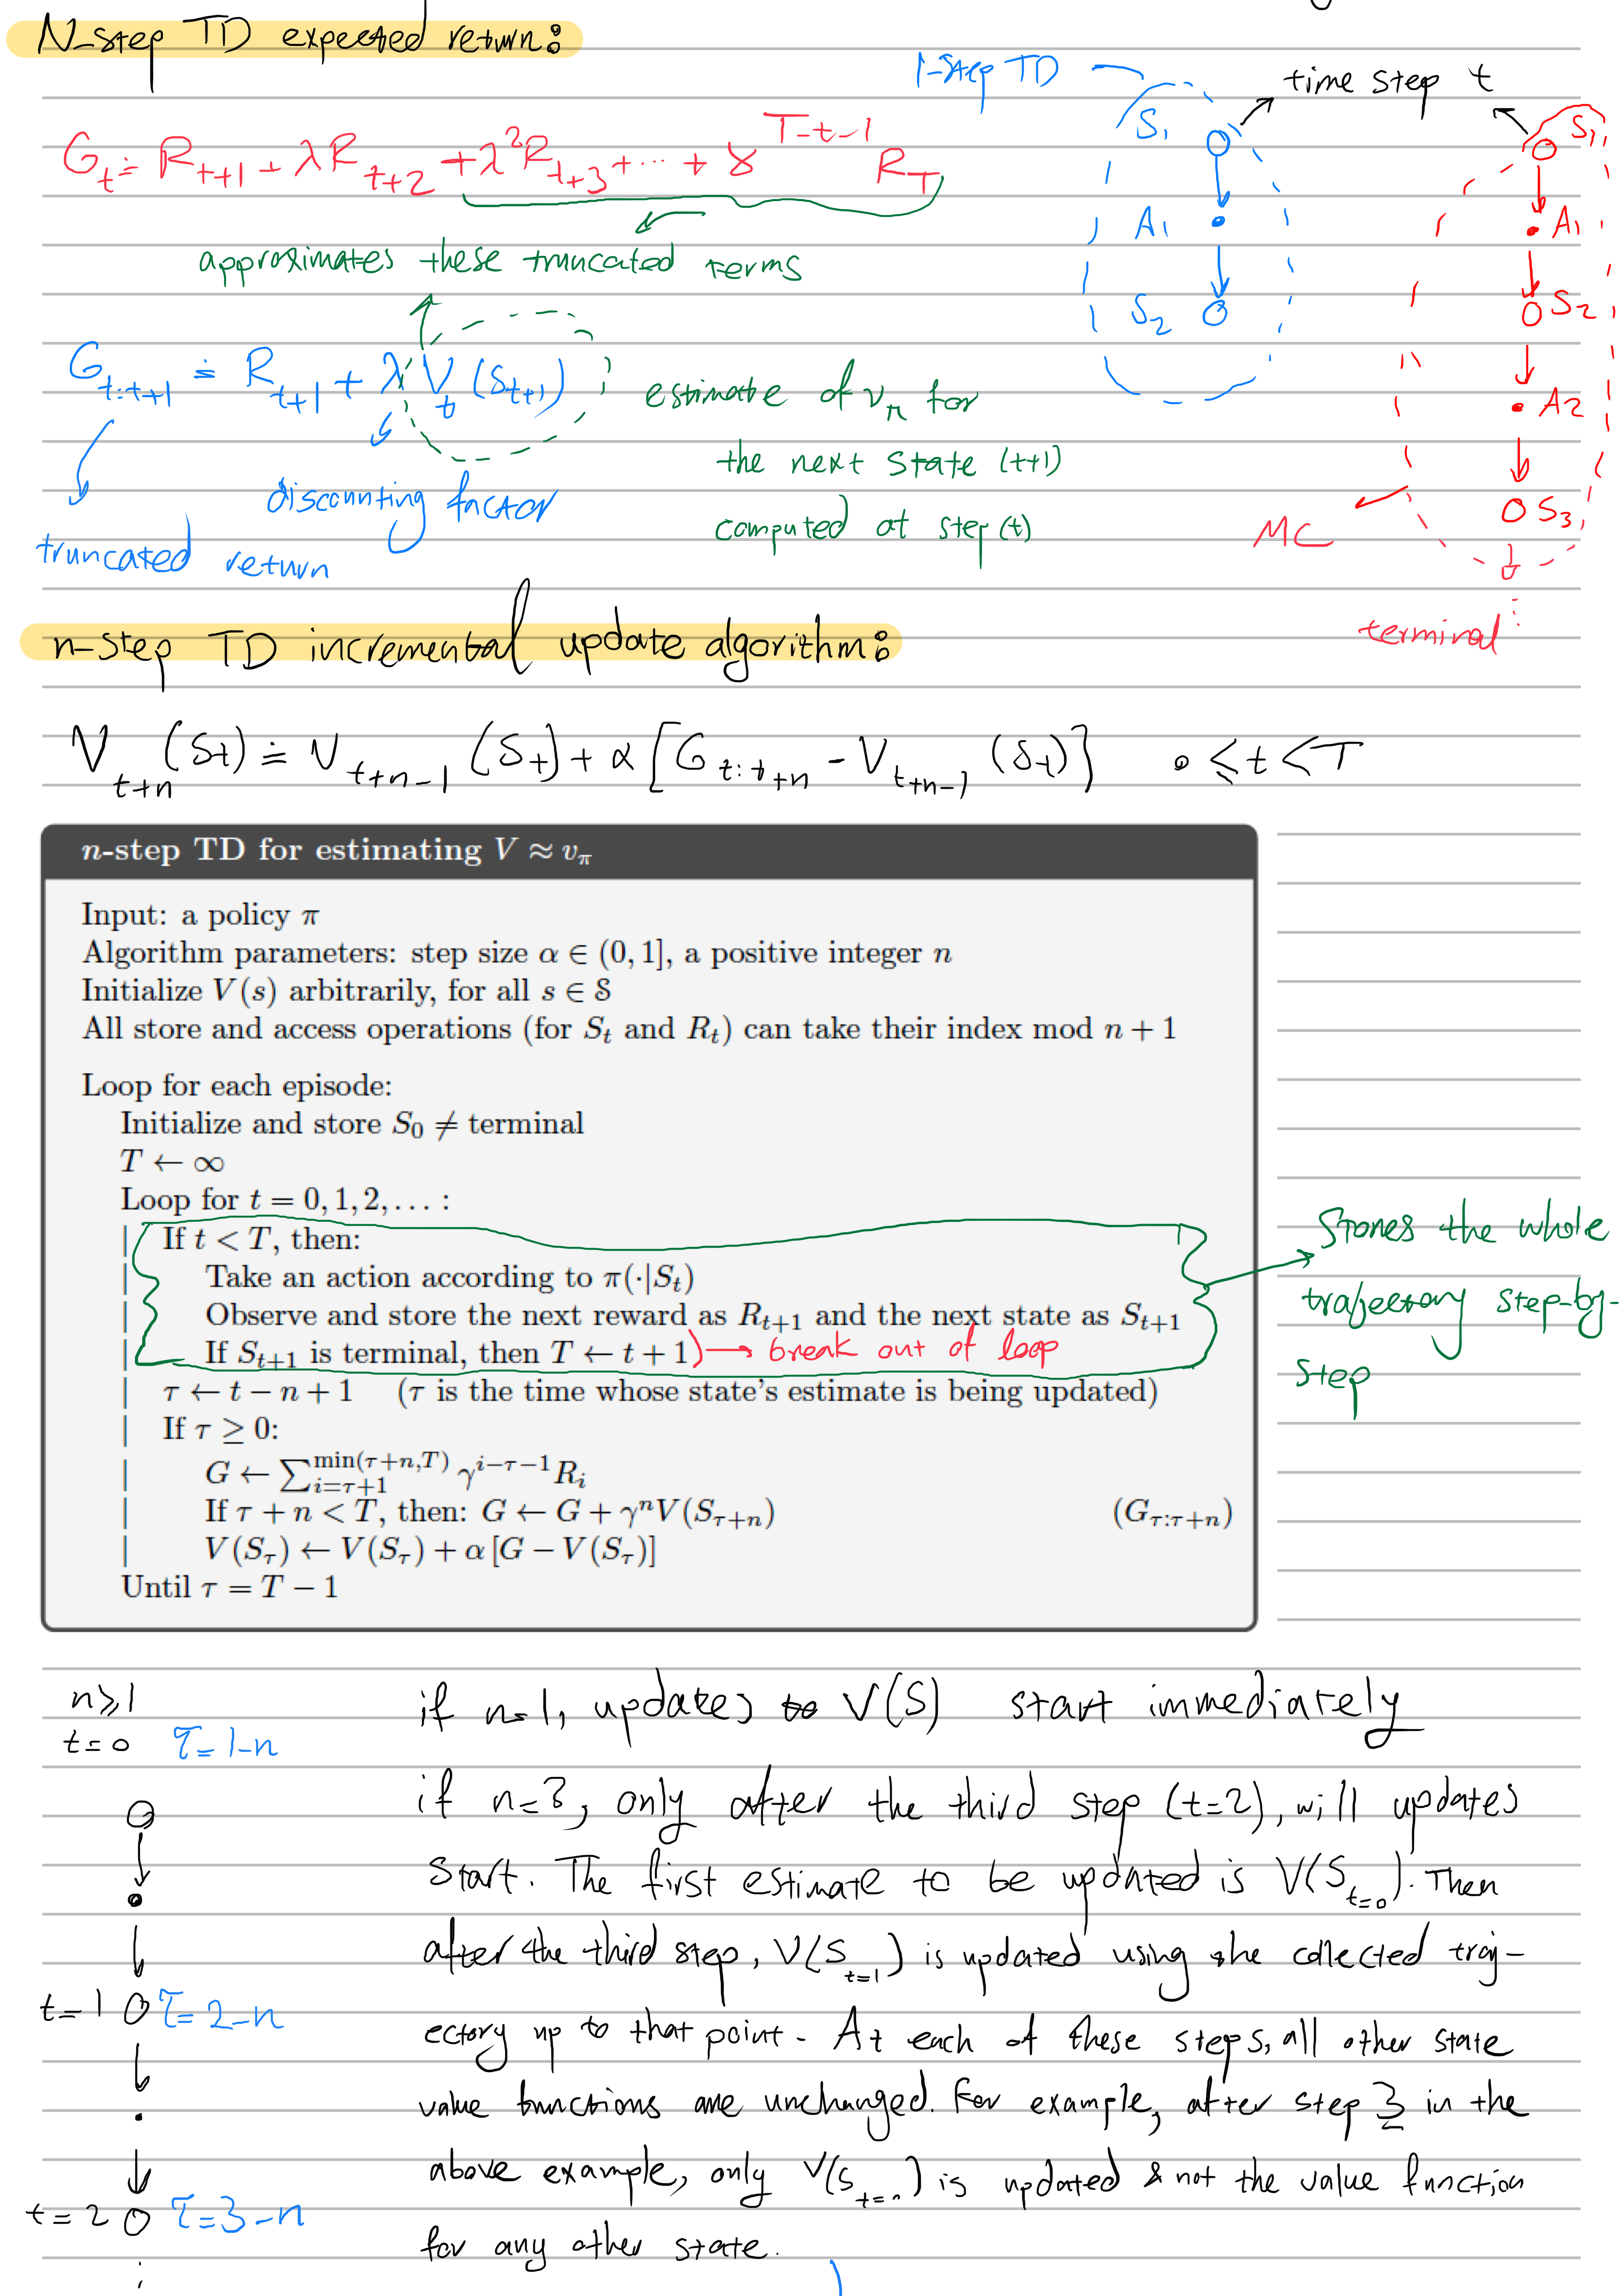 N-step TD expected return:
1-step TD
time step t
G_t ≐ R_{t+1} + λR_{t+2} + λ²R_{t+3} + ... + γ^{T-t-1} R_T
S₁
S₁
A₁
A₁
approximates these truncated terms
S₂
S₂
G_{t:t+1} ≐ R_{t+1} + λ V_t (S_{t+1})
estimate of v_π for
A2
the next state (t+1)
discounting factor
computed at step (t)
S₃
MC
truncated return
terminal
n-step TD incremental update algorithm:
V_{t+n} (St) ≐ V_{t+n-1} (St) + α [G_{t:t+n} - V_{t+n-1} (St)] 0 ≤ t < T
n-step TD for estimating V ≈ v_π
Input: a policy π
Algorithm parameters: step size α ∈ (0, 1], a positive integer n
Initialize V(s) arbitrarily, for all s ∈ S
All store and access operations (for S_t and R_t) can take their index mod n + 1
Loop for each episode:
Initialize and store S₀ ≠ terminal
T ← ∞
Loop for t = 0, 1, 2, . . . :
| If t < T, then:
| Take an action according to π(·|S_t)
| Observe and store the next reward as R_{t+1} and the next state as S_{t+1}
| If S_{t+1} is terminal, then T ← t + 1 → break out of loop
Stores the whole
trajectory step-by-
step
| τ ← t − n + 1 (τ is the time whose state's estimate is being updated)
| If τ ≥ 0:
| G ← ∑_{i=τ+1}^{min(τ+n,T)} γ^{i−τ−1} R_i
| If τ + n < T, then: G ← G + γⁿV(S_{τ+n}) (G_{τ:τ+n})
| V(S_τ) ← V(S_τ) + α [G − V(S_τ)]
Until τ = T − 1
n≥1
t=0 τ=1-n
t=1 τ=2-n
t=2 τ=3-n
if n=1, updates to V(S) start immediately
if n=3, only after the third step (t=2), will updates
start. The first estimate to be updated is V(S_{t=0}). Then
after the third step, V(S_{t=1}) is updated using the collected traj-
ectory up to that point. At each of these steps, all other state
value functions are unchanged. For example, after step 3 in the
above example, only V(S_{t=0}) is updated & not the value function
for any other state.